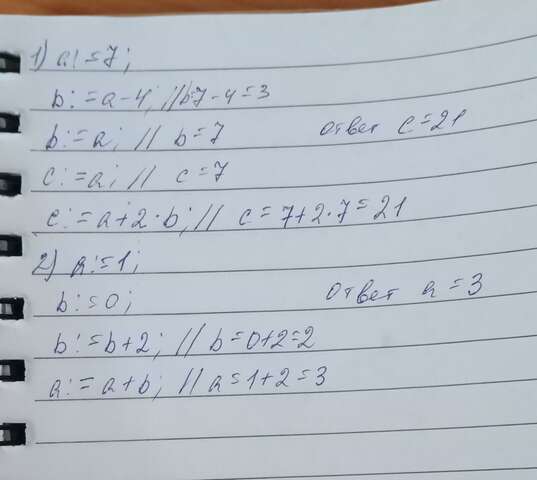 1) a:=7;
b:=a-4; //b=7-4=3
b:=a; // b=7 ответ c=21
c:=a; // c=7
c:=a+2·b; // c=7+2·7=21
2) a:=1;
b:=0; ответ a=3
b:=b+2; // b=0+2=2
a:=a+b; // a=1+2=3